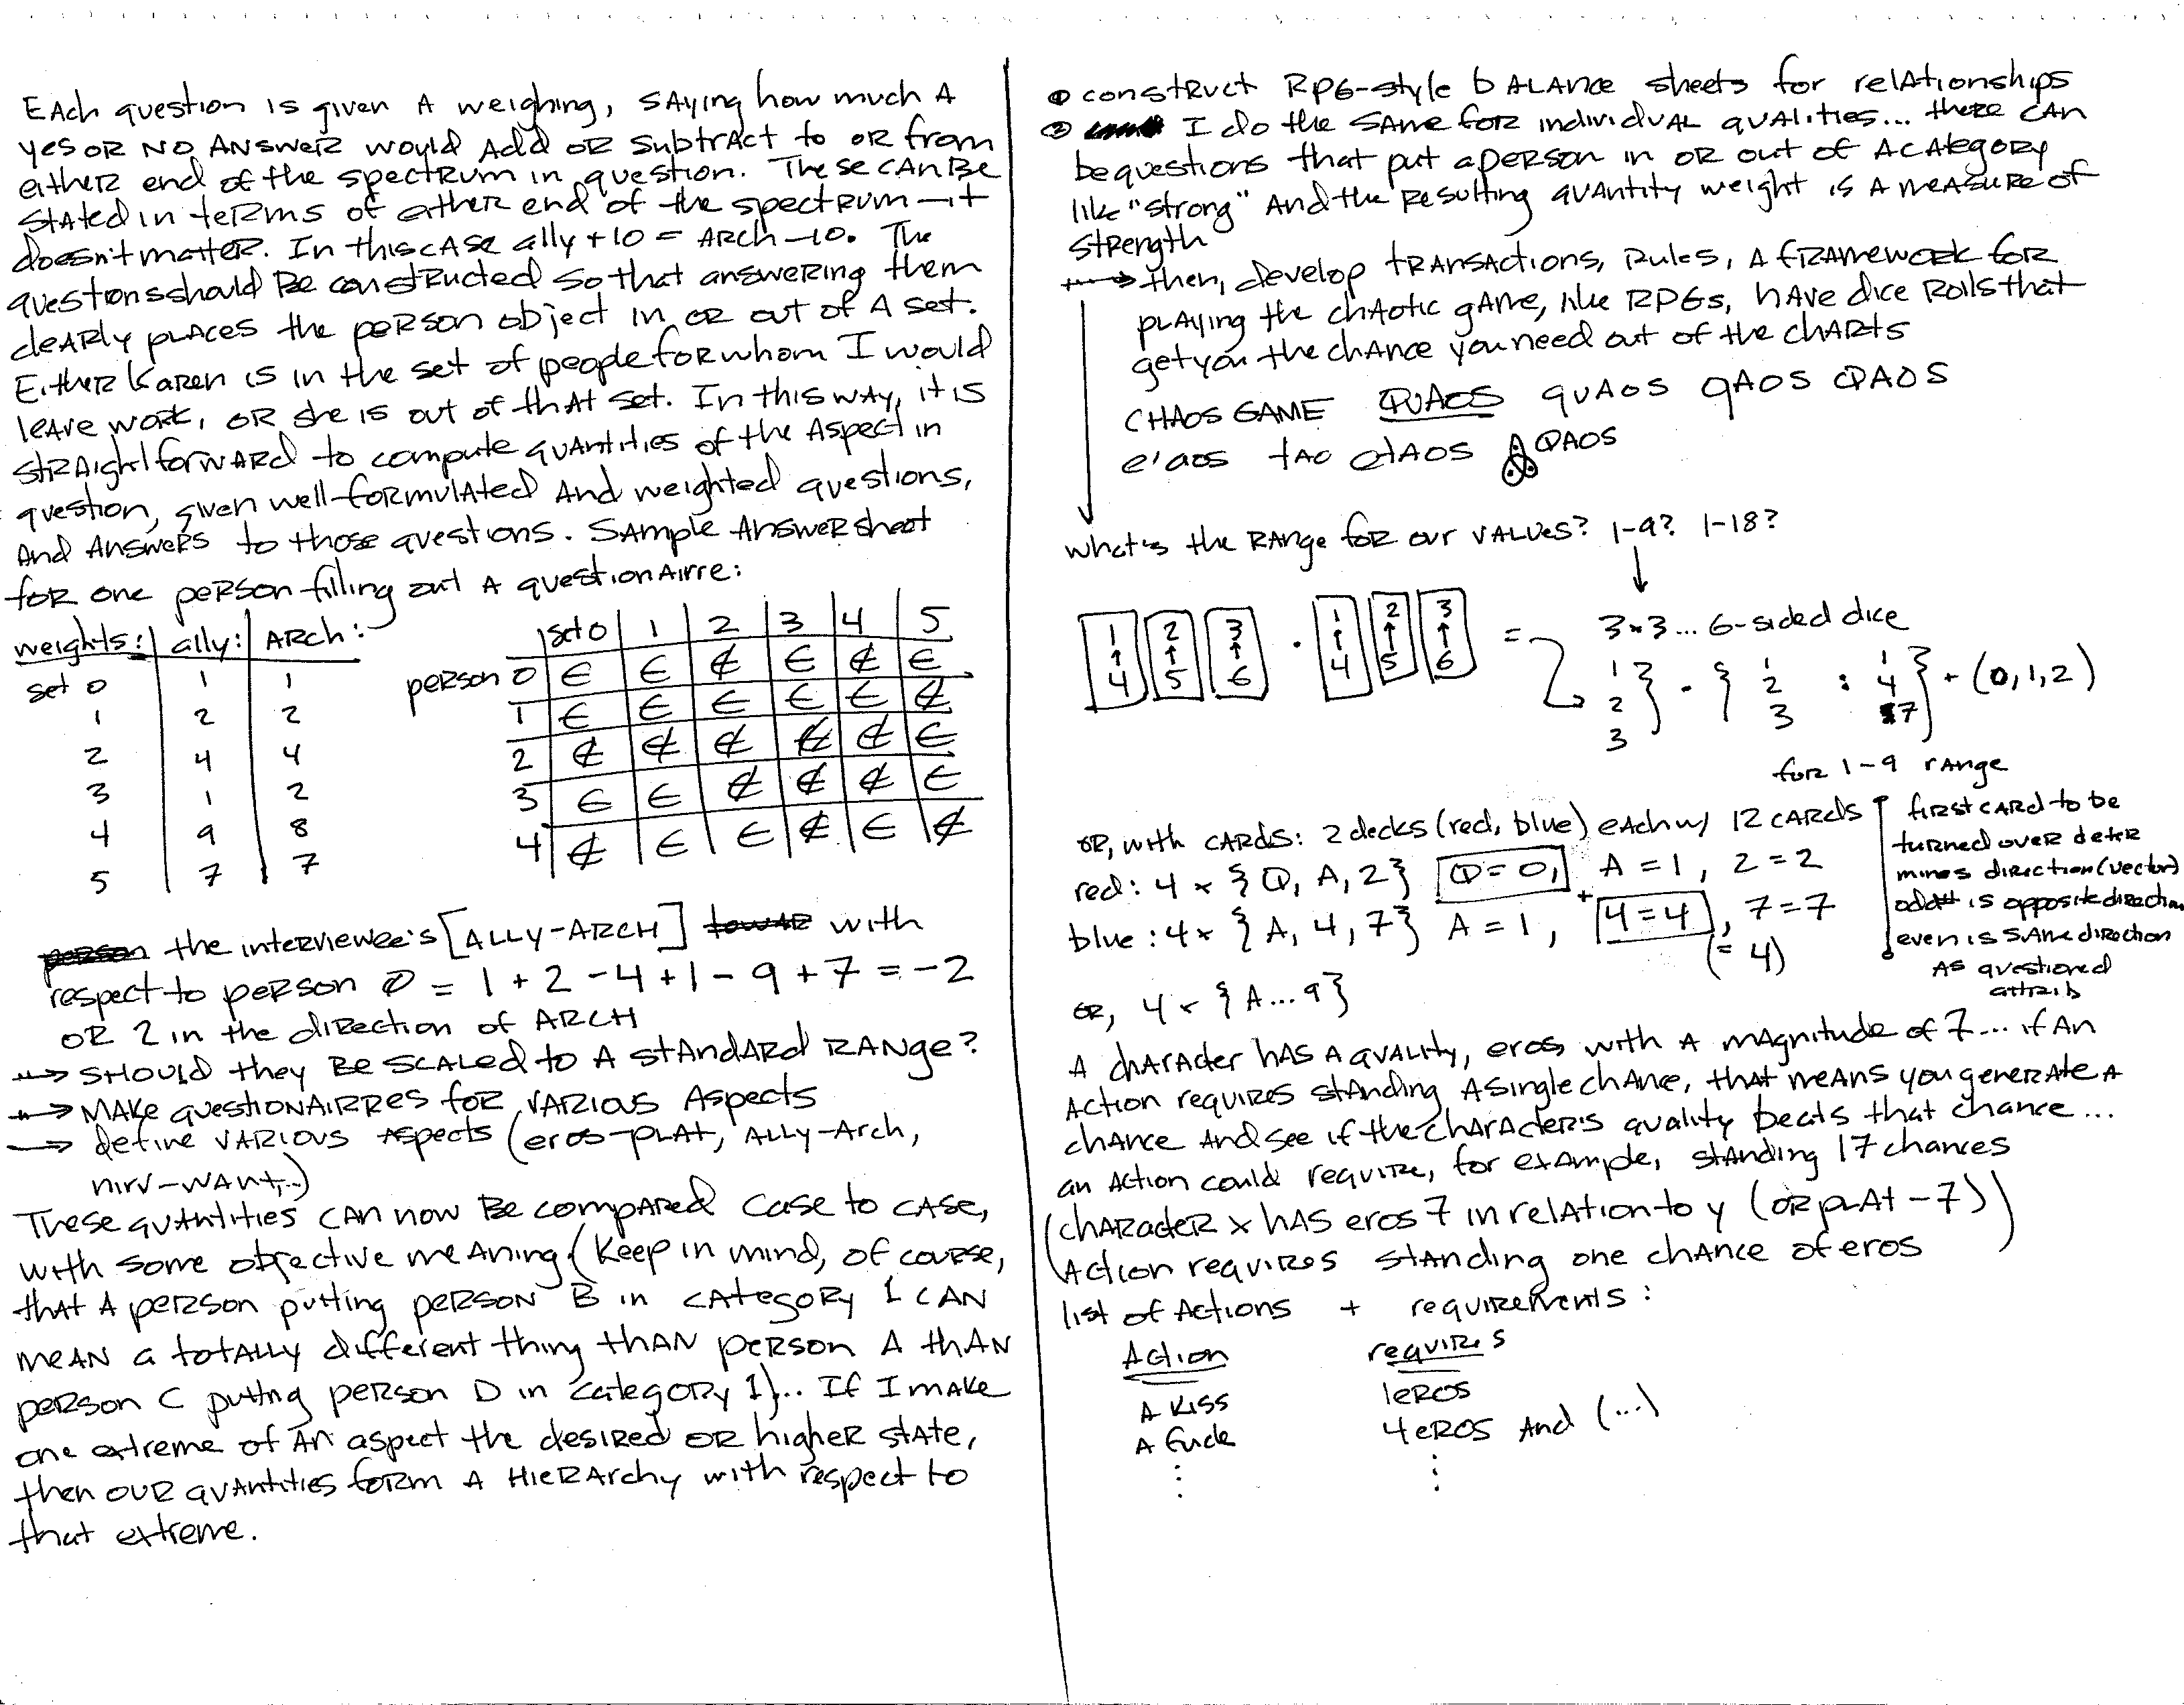 EACH question is given A weighing, SAYing how much A
yes OR NO ANSWER would Add OR subtract to OR from
either end of the spectrum in question. These CAN BE
stated in terms of either end of the spectrum — it
doesn't matter. In this case ally +10 = ARCh -10. The
questions should be constructed so that answering them
cleARly plACes the person object in OR out of A set.
Either Karen is in the set of people for whom I would
leave work, OR she is out of that set. In this way, it is
straightforward to compute quantities of the Aspect in
question, given well-formulated And weighted questions,
And Answers to those questions. Sample Answer sheet
for one person filling out A questionairre:
weights: ally: ARCh:
set 0 1 1
1 2 2
2 4 4
3 1 2
4 9 8
5 7 7
set 0 1 2 3 4 5
person 0 ∈ ∈ ∉ ∈ ∉ ∈
1 ∈ ∈ ∈ ∈ ∈ ∉
2 ∉ ∉ ∉ ∉ ∉ ∈
3 ∈ ∈ ∉ ∉ ∉ ∈
4 ∉ ∈ ∈ ∉ ∈ ∉
the interviewee's [ALLY-ARCH] with
respect to person 0 = 1 + 2 - 4 + 1 - 9 + 7 = -2
OR 2 in the direction of ARCH
→ SHOULD they BE SCALED to A standard RANGE?
→ MAKE questionairres for VARIOUS Aspects
→ define VARIOUS Aspects (eros-plat, ALLY-Arch,
nirv-WANT,..)
These quantities CAN now BE compared case to case,
with some objective meaning (keep in mind, of course,
that A person putting person B in category 1 CAN
mean a totally different thing than person A than
person C putting person D in category 1)... If I make
one extreme of an aspect the desired OR higher state,
then our quantities form A Hierarchy with respect to
that extreme.
① construct RPG-style bALANce sheets for relationships
② I do the same for individual qualities... there CAN
be questions that put a person in OR out of A category
like "strong" And the resulting quantity weight is A measure of
strength
→ then, develop transactions, rules, A framework for
plAying the chaotic gAme, like RPGs, have dice rolls that
get you the chance you need out of the charts
CHAOS GAME QUAOS quAOS qAOS QAOS
e'aos tAO QAOS
what's the RAnge for our VALUES? 1-9? 1-18?
1 2 3 · 1 2 3 = 3×3... 6-sided dice
↑ ↑ ↑ ↑ ↑ ↑
4 5 6 4 5 6
1 } · { 1 : 1 } + (0,1,2)
2 2 4
3 3 7
for 1-9 range
OR, with CARDS: 2 decks (red, blue) each w/ 12 CARDS
red: 4 × {Q, A, 2} Q = 0, A = 1, 2 = 2
blue: 4 × {A, 4, 7} A = 1, + 4 = 4, 7 = 7
(= 4)
first card to be
turned over deter
mines direction (vector)
odd is opposite direction
even is same direction
As questioned
attrib
OR, 4 × {A...9}
A character has A quality, eros with A magnitude of 7... if An
Action requires standing A single chance, that means you generate A
chance And see if the character's quality beats that chance...
an Action could require, for example, standing 17 chances
(character x has eros 7 in relation to y (OR plAt -7))
Action requires standing one chance of eros
list of Actions + requirements:
Action requires
A kiss 1 eROS
A fuck 4 eROS And (...)